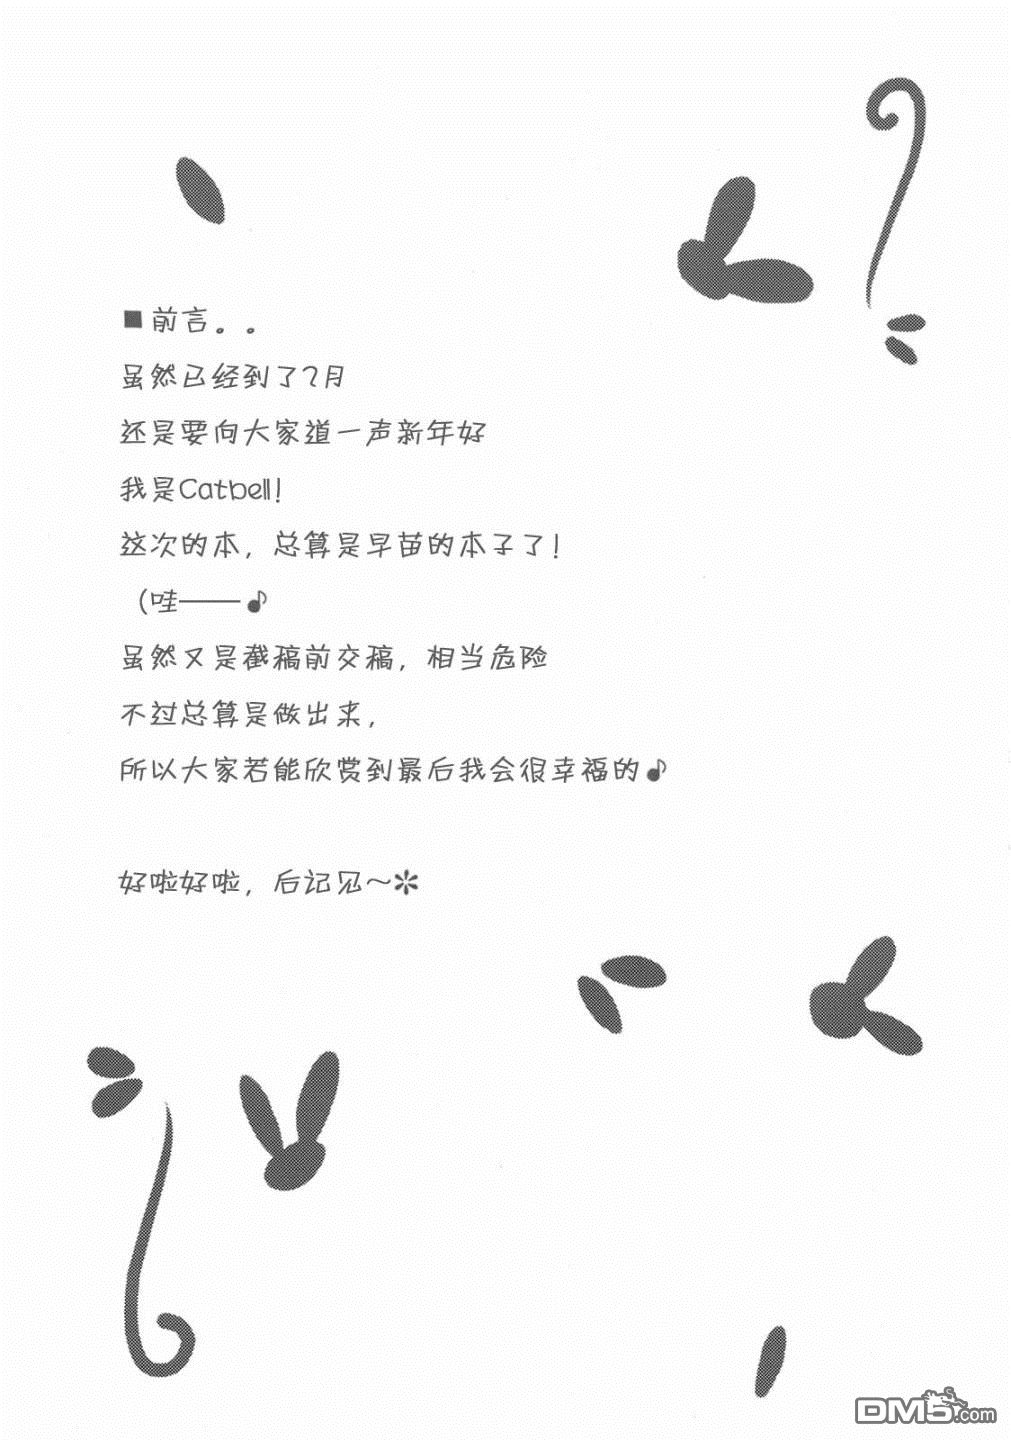 ■前言。。
虽然已经到了2月
还是要向大家道一声新年好
我是Catbell！
这次的本，总算是早苗的本子了！
（哇——♪
虽然又是截稿前交稿，相当危险
不过总算是做出来，
所以大家若能欣赏到最后我会很幸福的♪
好啦好啦，后记见～✼
DM5.com